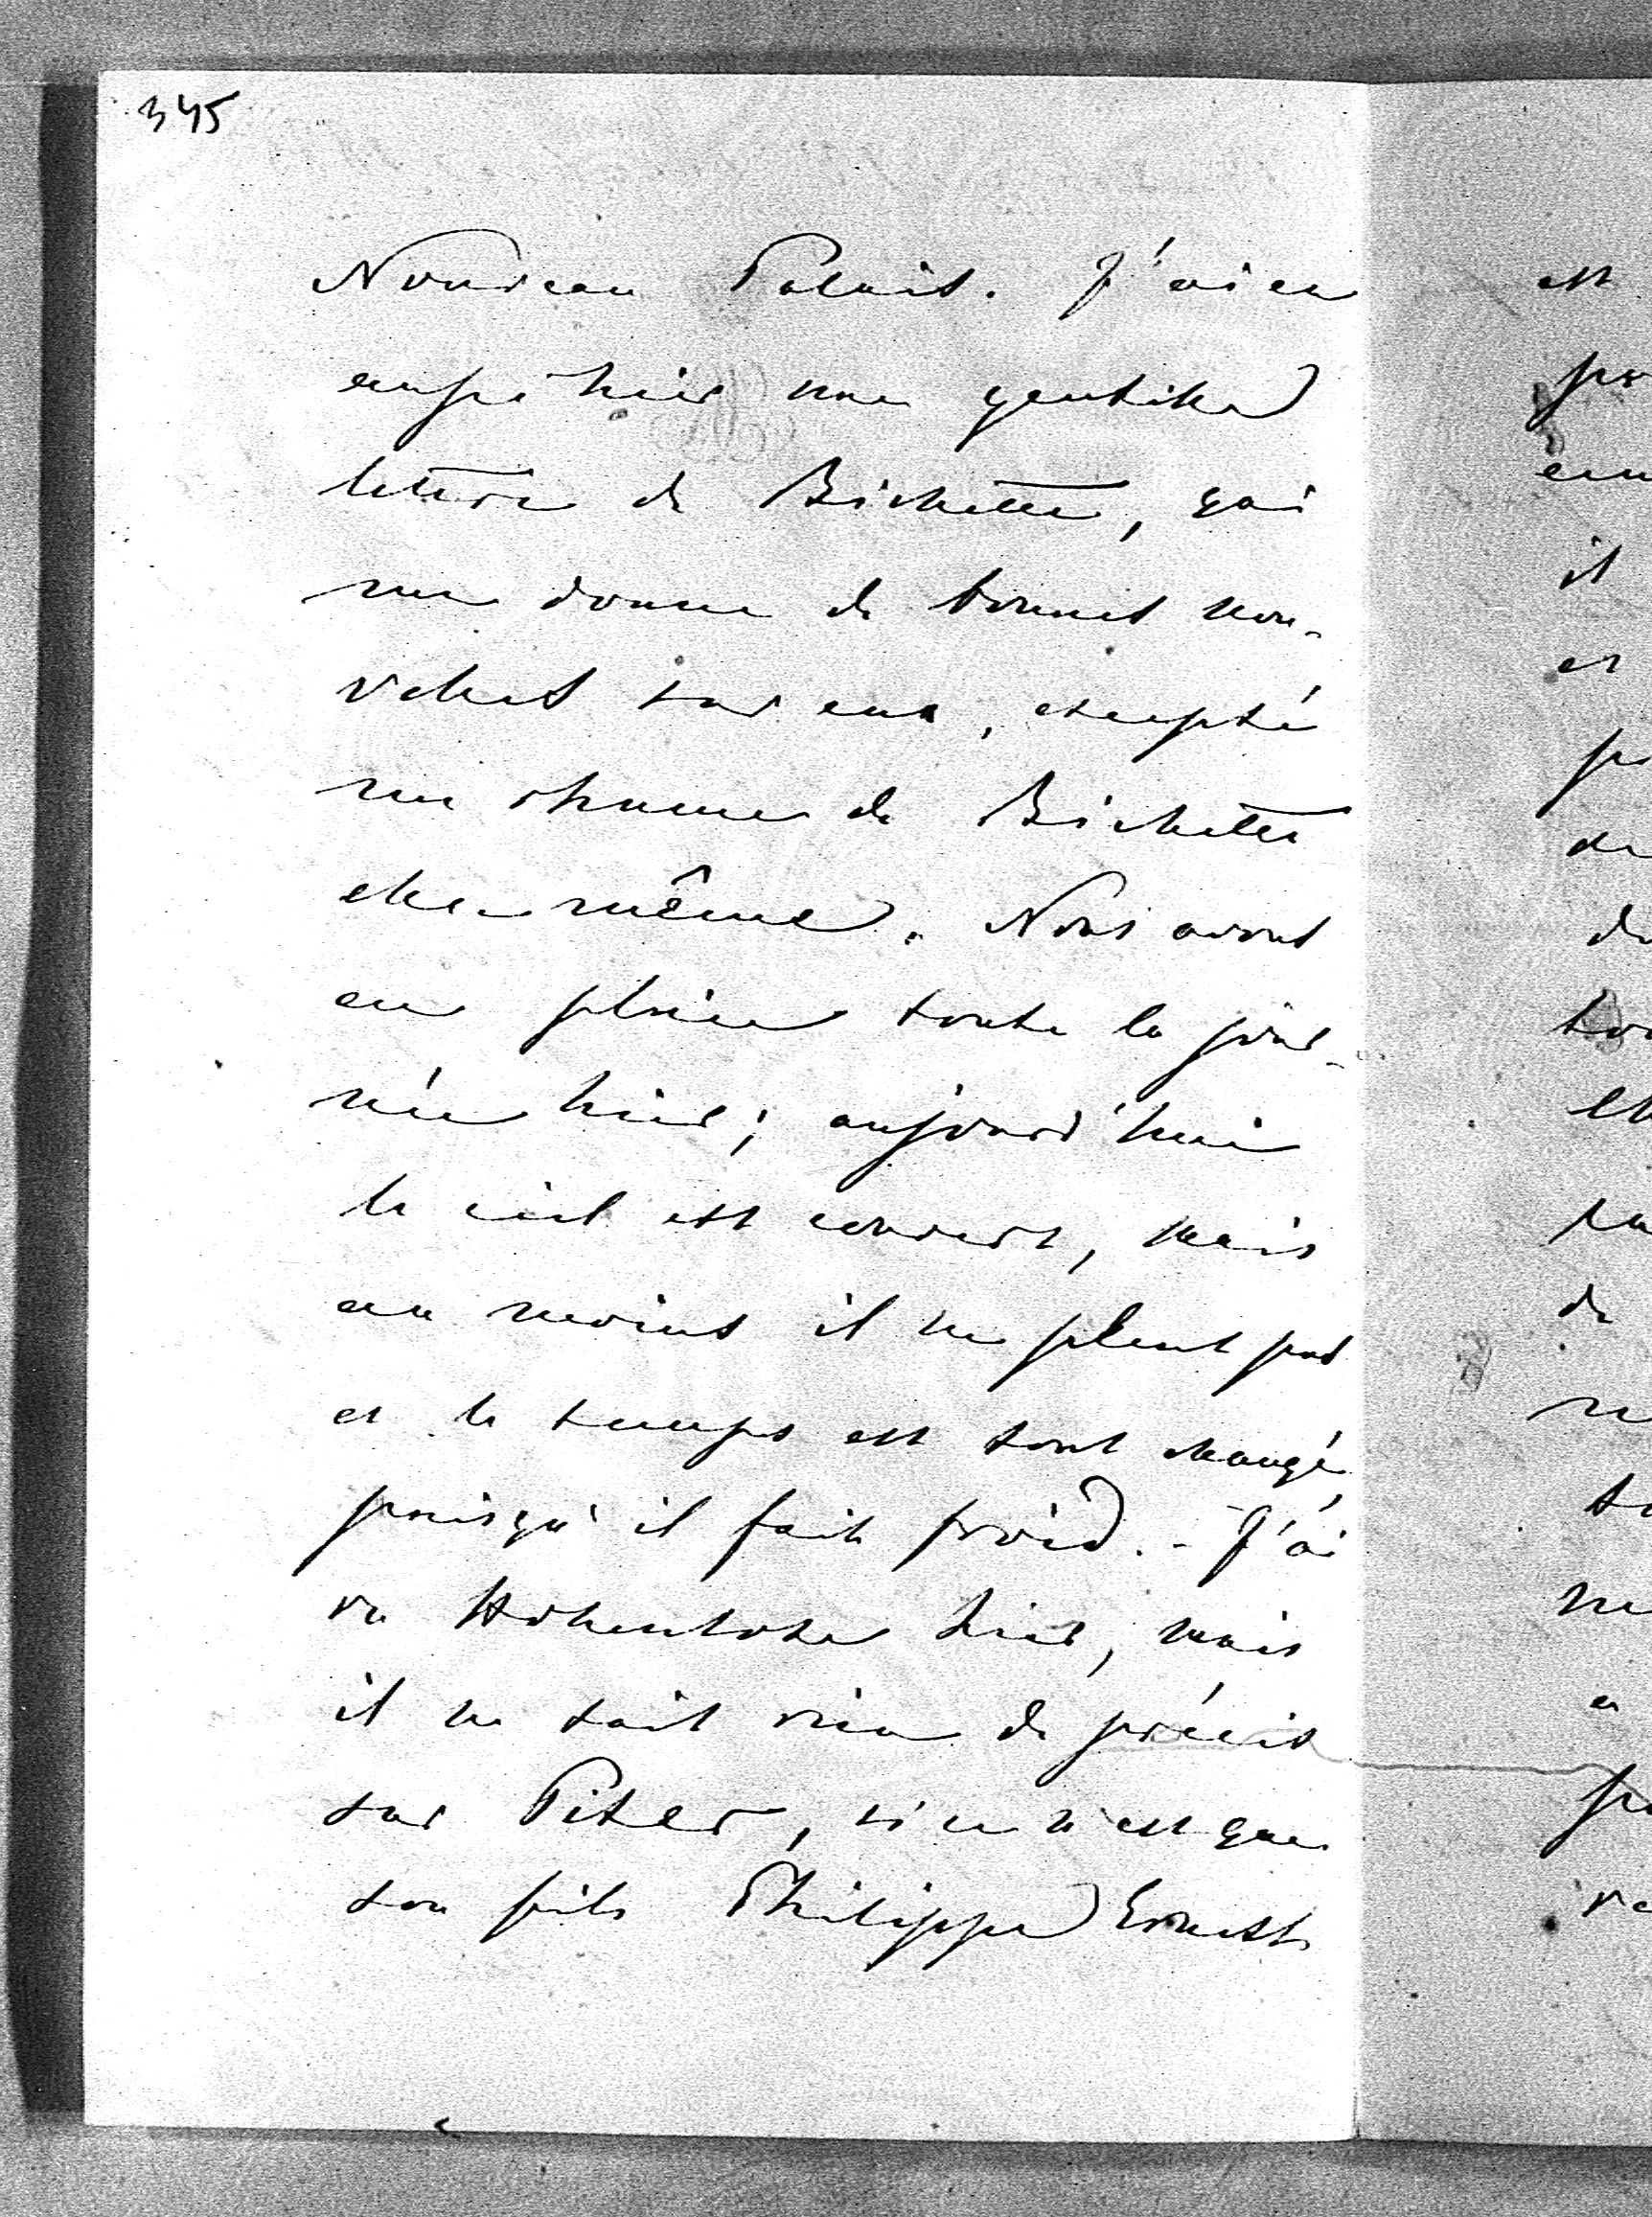 345
Nouveau Palais. J'ai eu
enfin hier une gentille
lettre de Bichette, qui
me donne de bonnes nou-
velles sur eux, excepté
un rhume de Bichette
elle-même. Nous avons
eu pluie toute la jour-
née hier; aujourd'hui
le ciel est couvert, mais
au moins il ne pleut pas
et le temps est tout changé,
puisqu'il fait froid. - J'ai
vu Hohenlohe hier, mais
il ne sait rien de précis
sur Peter, si ce n'est que
son fils Philippe Ernest
est
il
et
de